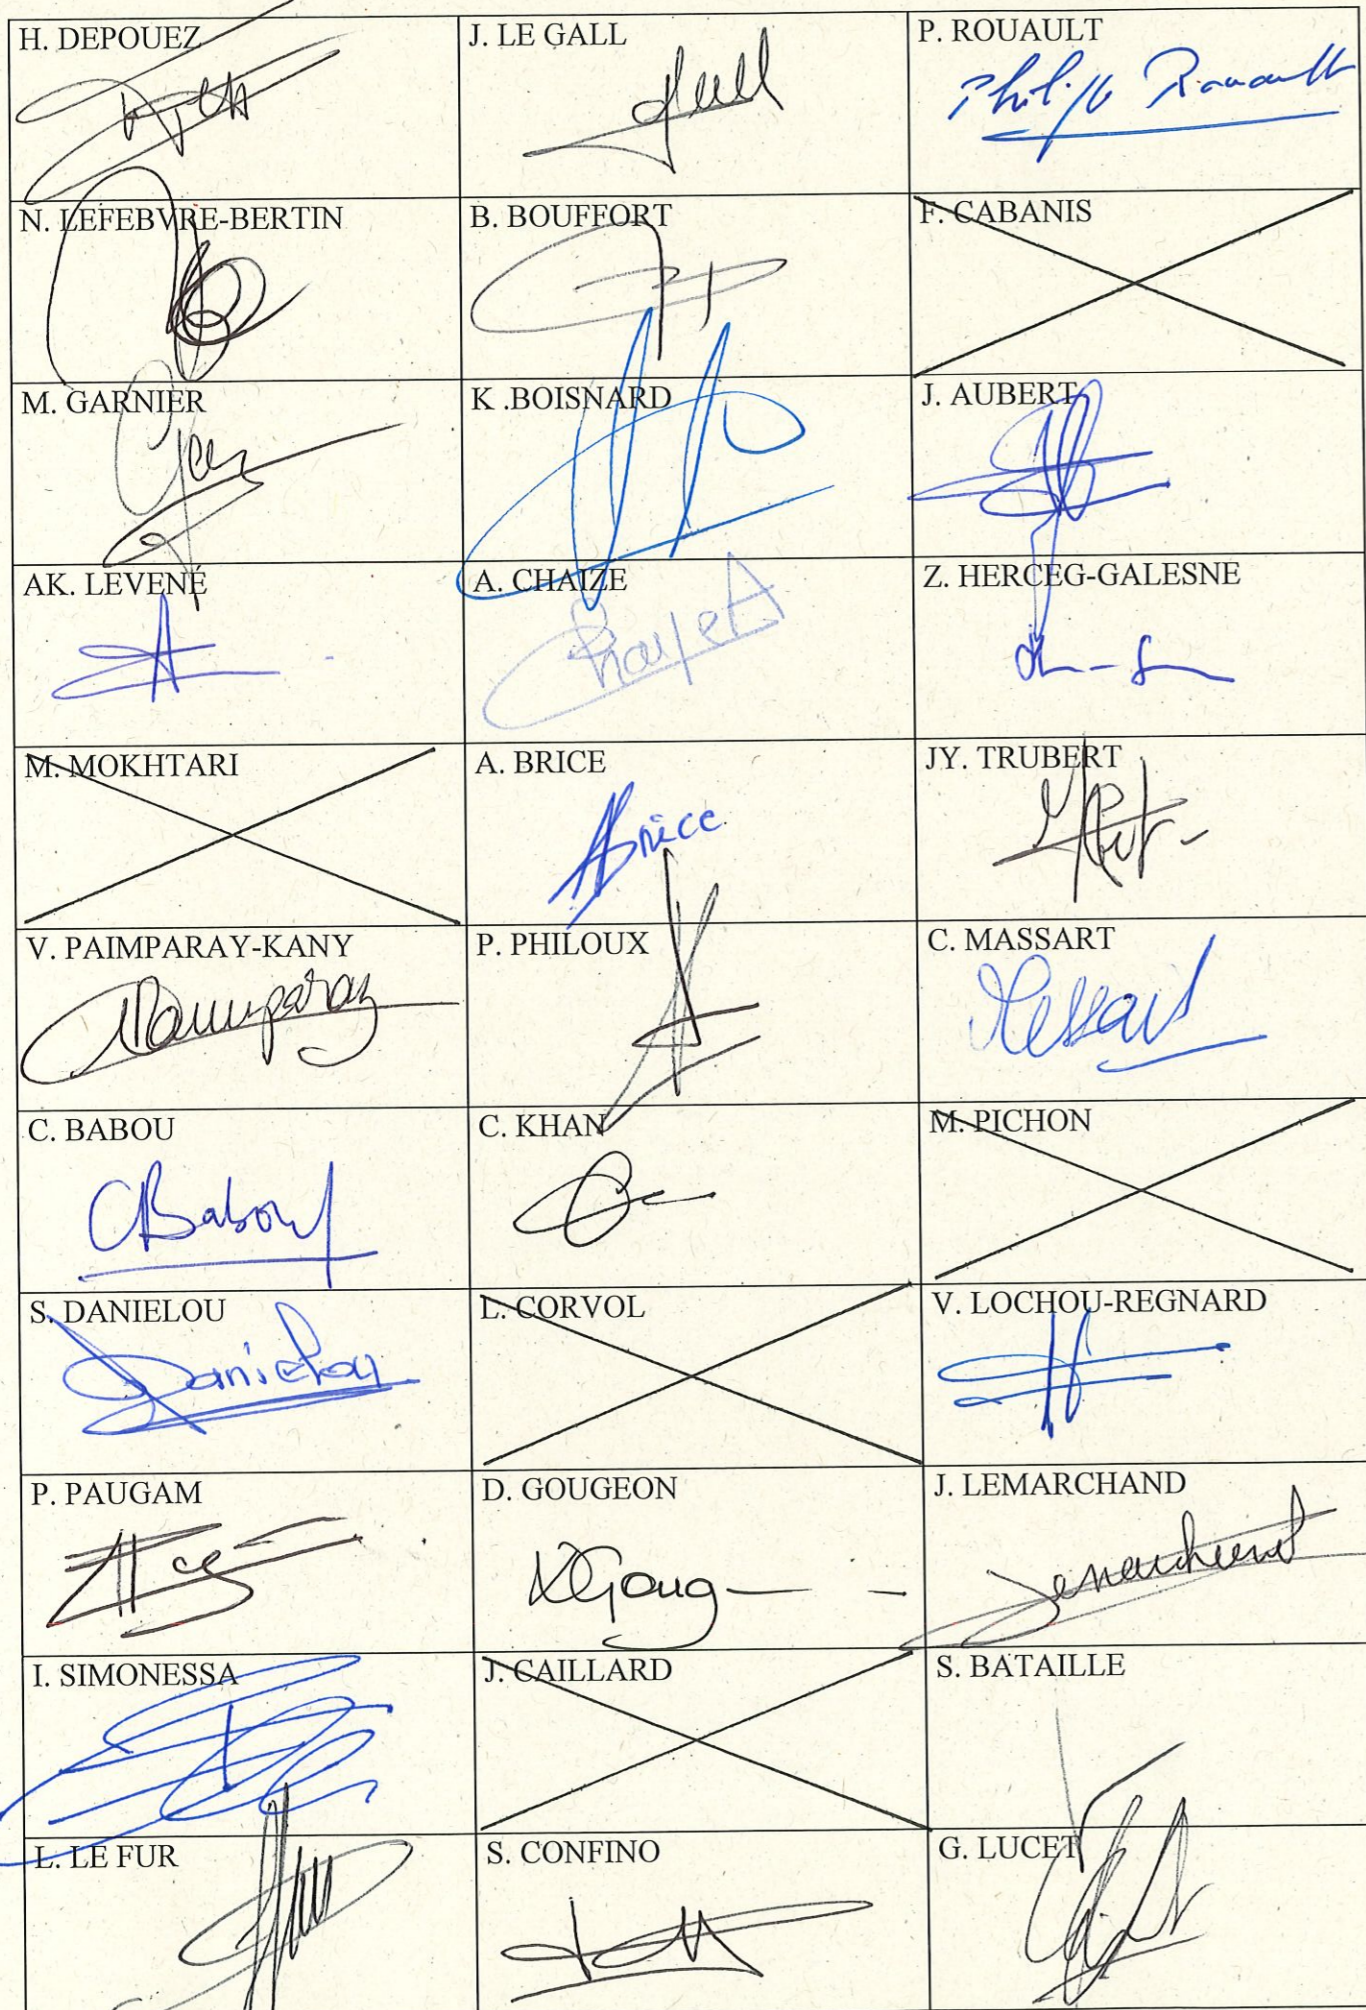 H. DEPOUEZ
J. LE GALL
P. ROUAULT
Philippe Rouault
N. LEFEBVRE-BERTIN
B. BOUFFORT
F. CABANIS
M. GARNIER
K .BOISNARD
J. AUBERT
AK. LEVENÉ
A. CHAIZE
Z. HERCEG-GALESNE
M. MOKHTARI
A. BRICE
ABrice
JY. TRUBERT
V. PAIMPARAY-KANY
P. PHILOUX
C. MASSART
Massart
C. BABOU
CBabou
C. KHAN
M. PICHON
S. DANIELOU
Danielou
L. CORVOL
V. LOCHOU-REGNARD
P. PAUGAM
D. GOUGEON
DGoug
J. LEMARCHAND
Lemarchand
I. SIMONESSA
J. CAILLARD
S. BATAILLE
L. LE FUR
S. CONFINO
G. LUCET